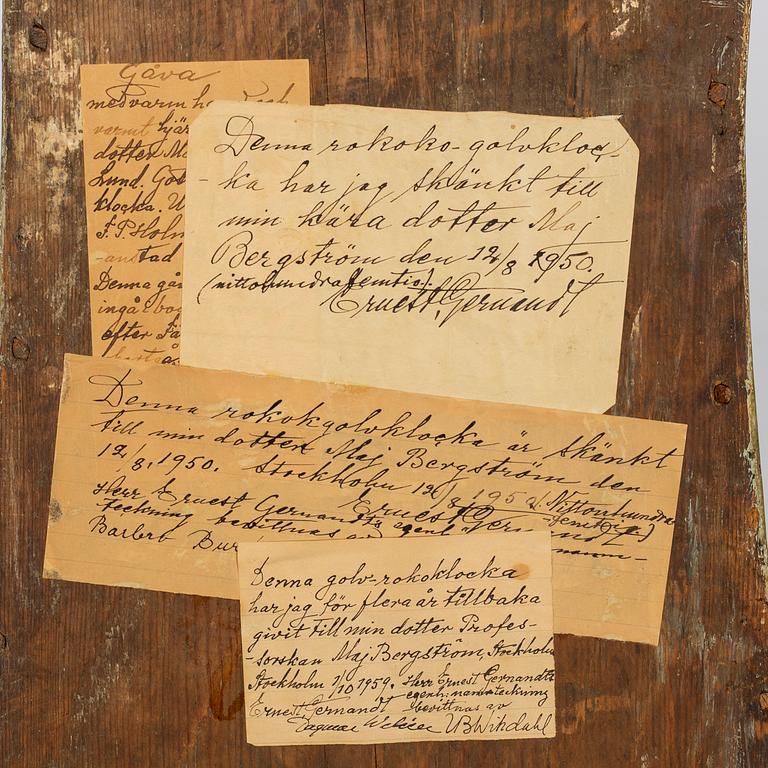 Gåva
med varm
varmt hjär
dotter Ma
Lund.
klocka. U
F. P. Holm
-anstad
Denna gån
ingå i bo
efter
Denna rokoko-golvkloc-
-ka har jag skänkt till
min kära dotter Maj
Bergström den 12/8 1950.
(nittohundrafemtio).
Ernest Gernandt
Denna rokokgolvklocka är skänkt
till min dotter Maj Bergström den
12/8. 1950. Stockholm 12/8 1950. (Nittonhundra-
femtio)
Ernest Gernandt
Herr Ernest Gernandts egenh. namn-
teckning bevittnas av
Barbro Bur
Denna golv-rokoklocka
har jag för flera år tillbaka
givit till min dotter Profes-
-sorskan Maj Bergström, Stockholm
Stockholm 1/10 1959. Herr Ernest Gernandts
egenh. namnteckning
Ernest Gernandt bevittnas av
Dagmar UB Wikdahl